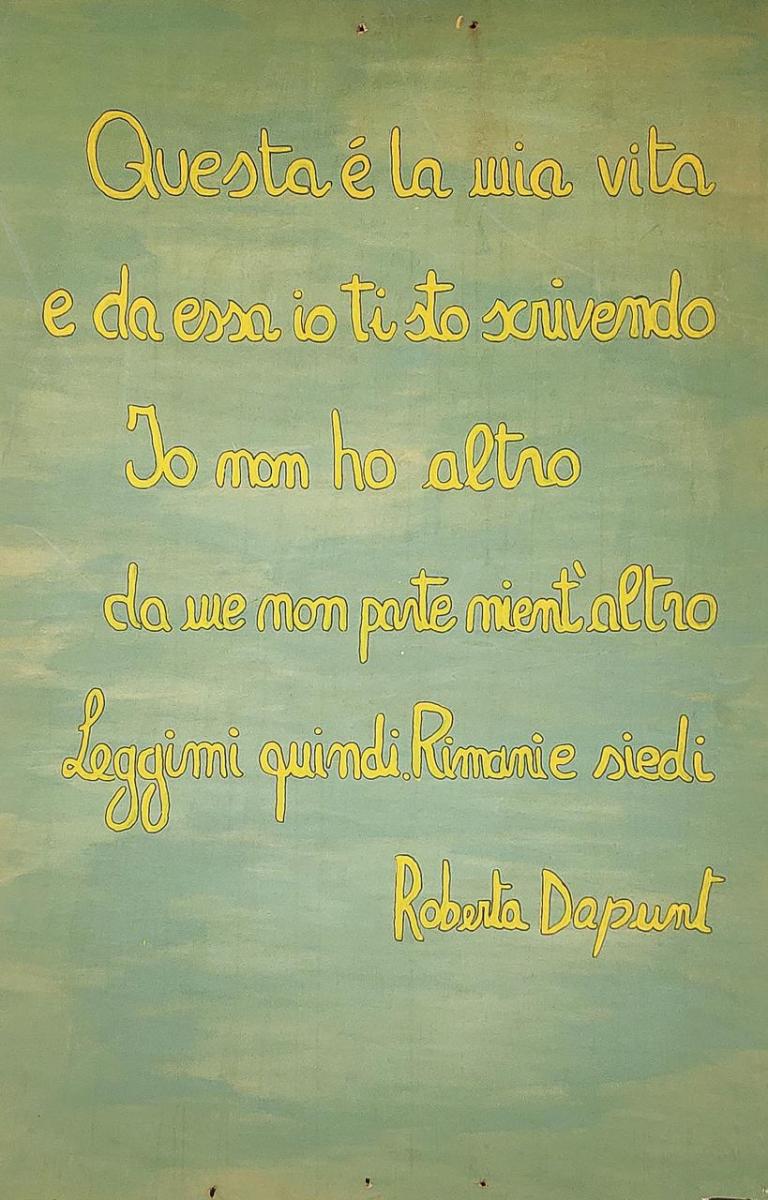 Questa é la mia vita
e da essa io ti sto scrivendo
Io non ho altro
da me non parte nient'altro
Leggimi quindi. Rimani e siedi
Roberta Dapunt